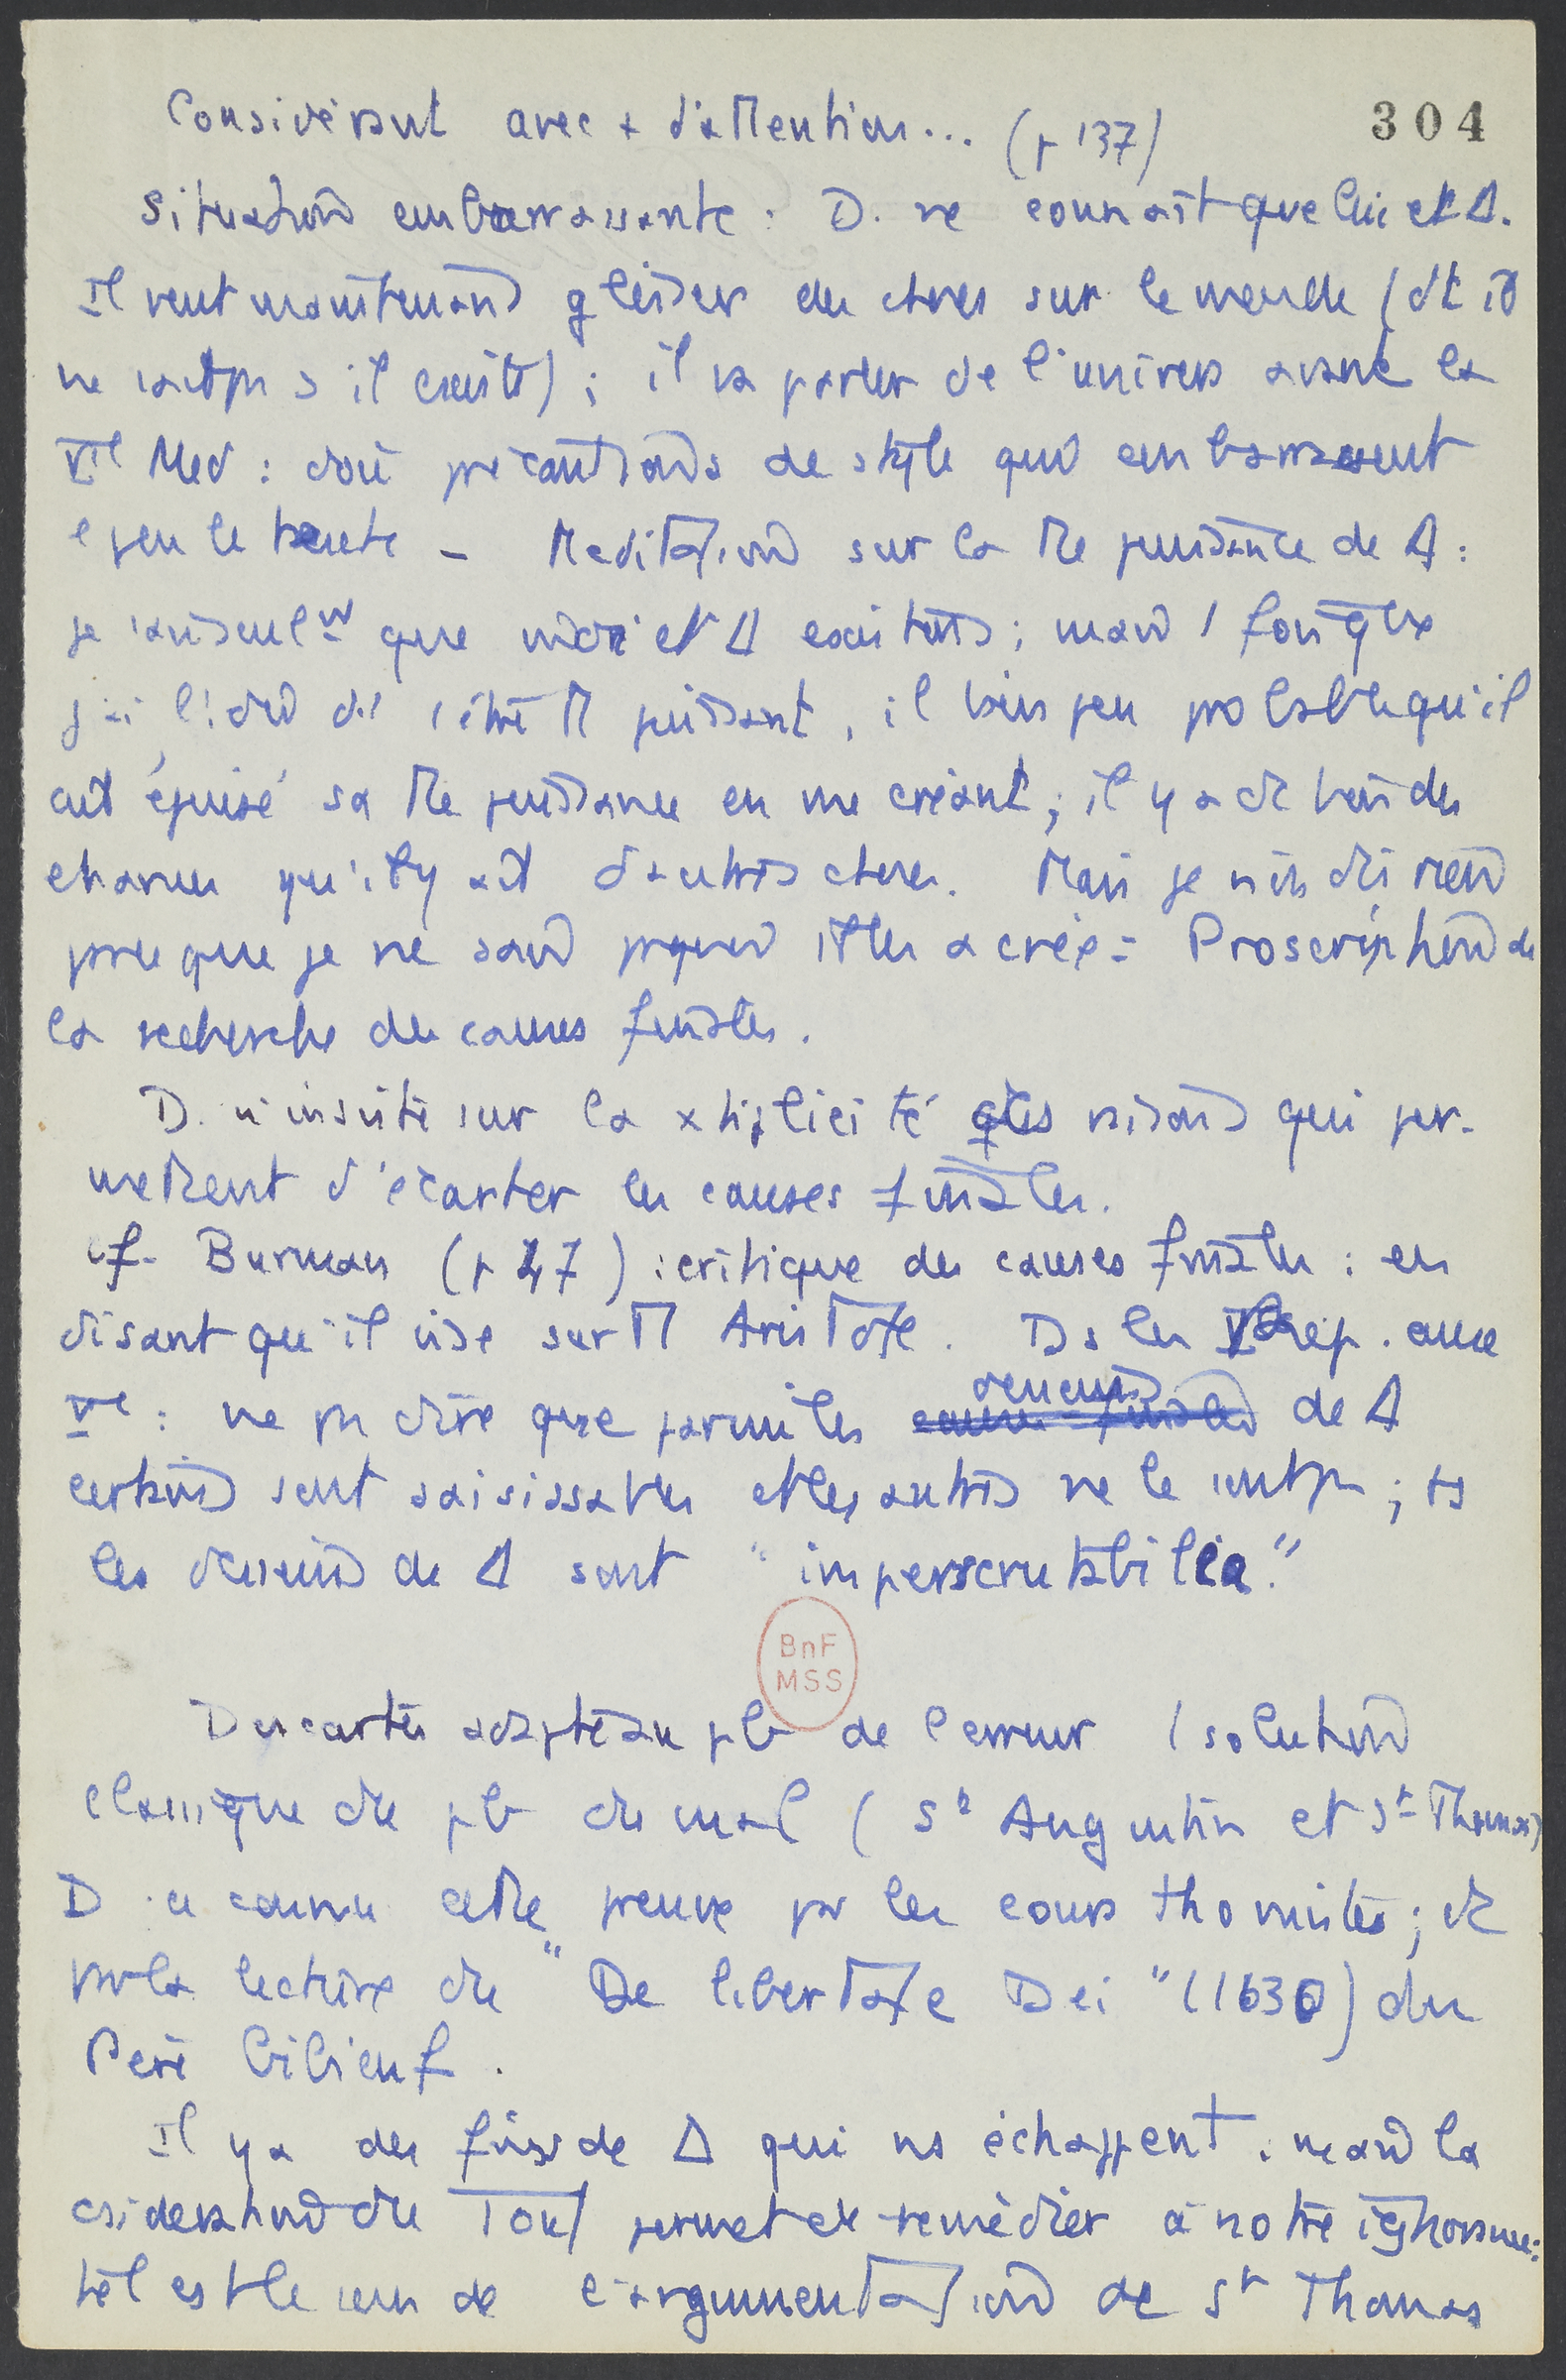 Considérant avec + d'attention... (p 137)
304
Situation embarrassante : D. ne connaît que lui et Δ.
Il veut maintenant glisser des choses sur le monde (dt il
ne sait pas s'il existe) ; il va parler de l'univers avant la
VIe Med : d'où précautions de style qui embarrassent
1 peu le texte – Méditation sur la tte puissance de Δ :
je sais seulnt que moi et Δ existons ; mais 1 fois que
j'ai l'idée d'1 être tt puissant, il sera peu probable qu'il
ait épuisé sa tte puissance en me créant ; il y a de fortes
chances qu'il y ait d'autres choses. Mais je n'en dis rien
parce que je ne sais pourquoi il les a créé = Proscription de
la recherche des causes finales.
D. n'insiste sur la xtiplicité des raisons qui per-
mettent d'écarter les causes finales.
cf. Burman (p 47) : critique des causes finales : en
disant qu'il vise surtt Aristote. Ds les rep. aux
Ve : ne pas dire que parmi les desseins de Δ
certains sont saisissables et les autres ne le sont pas ; ts
les desseins de Δ sont "imperscrutabilia."
BnF
MSS
Descartes adapte au pb de l'erreur 1 solution
classique du pb du mal (St Augustin et St Thomas)
D. a connu cette preuve par les cours thomistes ; et
par la lecture du "De libertate Dei" (1630) du
Père Gibieuf.
Il y a des fins de Δ qui ns échappent. mais la
csidération du Tout permet de remédier à notre ignorance :
tel est le sens de l'argumentation de St Thomas